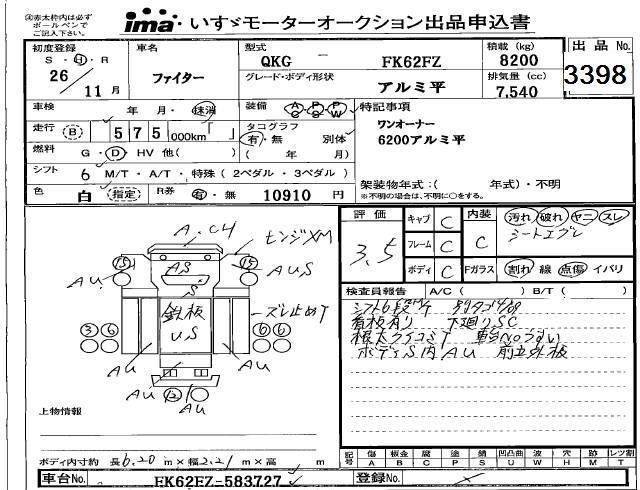 ㊟赤太枠内は必ず
ボールペンで
ご記入下さい。
ima いすゞモーターオークション出品申込書
初度登録 S・H・R 26 11 月
車名 ファイター
型式 QKG FK62FZ
積載 (kg) 8200
グレード・ボディ形状 アルミ平
排気量 (cc) 7,540
出品 No. 3398
車検 年 月・抹消
装備 AC PS PW
特記事項
ワンオーナー
6200アルミ平
走行 (B) 575 000km「 」
タコグラフ 有・無 別体
( 年 月)
燃料 G・D・HV 他( )
シフト 6 M/T・A/T・特殊 ( 2ペダル・3ペダル )
色 白 指定 R券 有・無 10910 円
架装物年式:( 年式)・不明
※不明の場合は、不明に○をする。
評価 3.5
キャブ C
フレーム C
ボディ C
内装 C
汚れ 破れ ヤニ スレ
シートエグレ
Fガラス 割れ 線 点傷 イバリ
検査員報告 A/C ( ) B/T ( )
看板有り 下廻りSC
ボディS内AU
A.C4
15 AS 15
AU AUS
S
鉄板 US
ズレ止めT
3 6 6 6
AU AU
AU 12 AU
上物情報
ボディ内寸約 長6.20m×幅2.21m×高 m
記号 傷A 板金B 腐C 塗P 錆S 凹凸曲U 波W 穴H 跡M レツ割T
車台No. FK62FZ-583727
登録No.